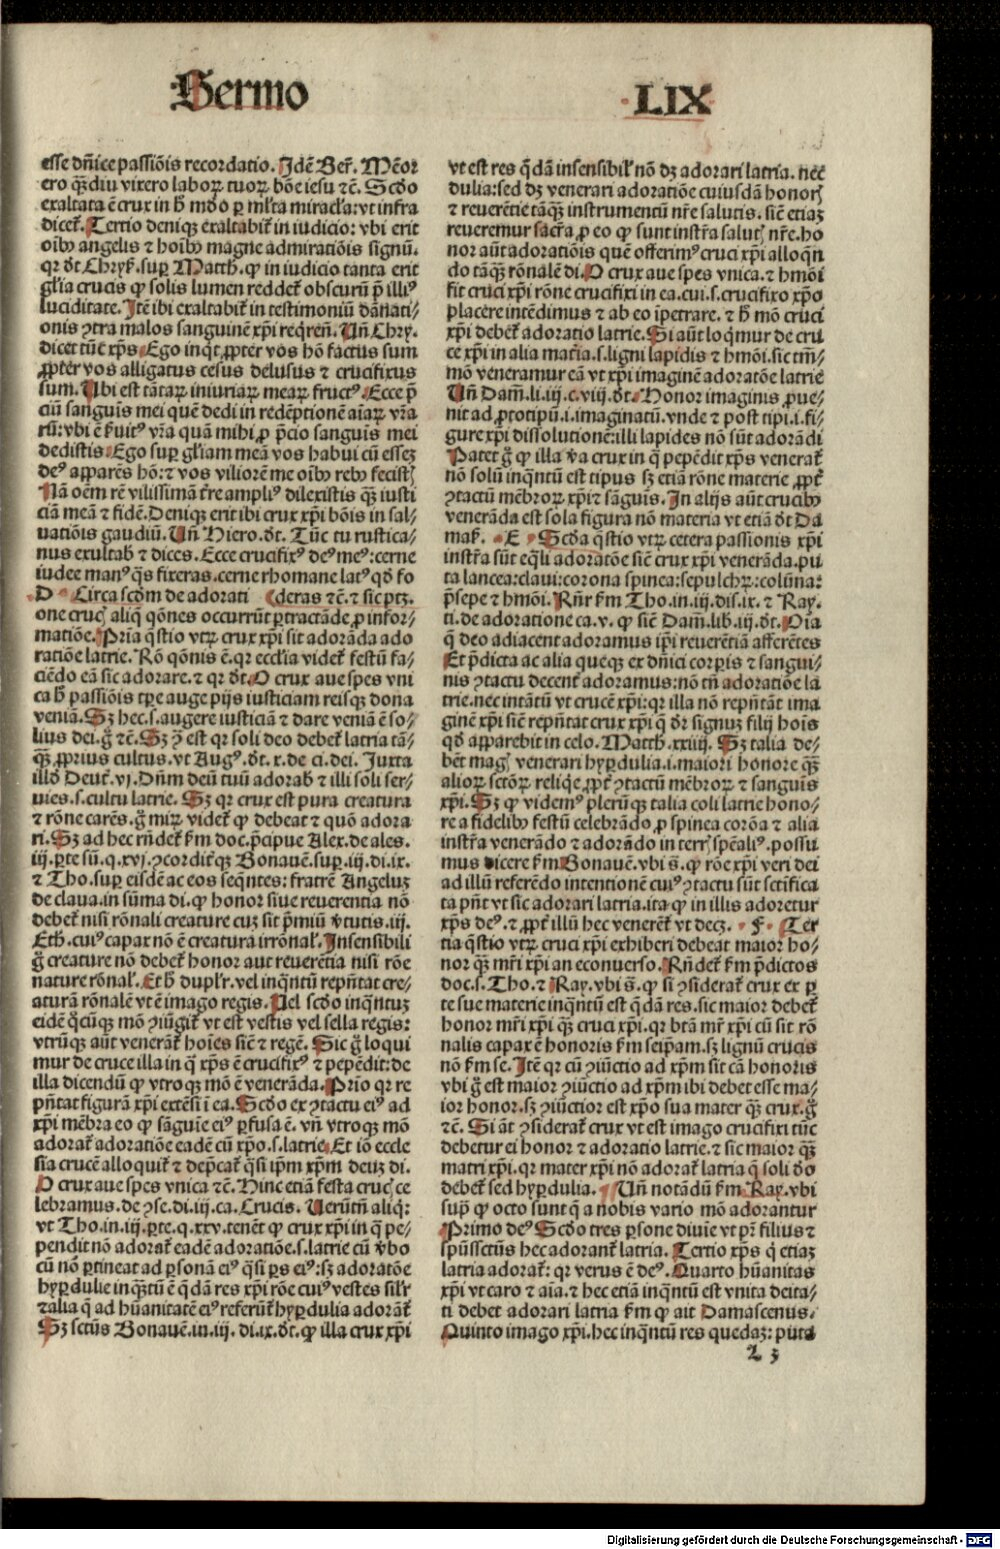 Sermo LIX
esse dñice passiõis recordatio. Jdẽ Ber̃. Mẽor
ero q̃ꝫdiu vixero laboꝝ tuoꝝ bõe iesu ⁊c̃. Scd̃o
exaltata ẽ crux in h̃ mũdo ꝑ ml̃ta miracl̃a: vt infra
dicet̃. Tertio deniqꝫ exaltabit̃ in iudicio: vbi erit
oibꝰ angelis ⁊ hoibꝰ magne admiratiõis signũ.
qr d̃t Chryß. suꝑ Matth. ꝙ in iudicio tanta erit
gl̃ia crucis ꝙ solis lumen reddet̃ obscurũ p̃ illiꝰ
luciditate. Jtẽ ibi exaltabit̃ in testimoniũ dãnati⸗
onis ꝯtra malos sanguinẽ xp̃i req̃rẽñ. Uñ Chry.
dicet tũc xp̃s. Ego inq̃t ꝓpter vos hõ factus sum
ꝓpter vos alligatus cesus delusus ⁊ crucifixus
sum. Ubi est tãtaꝝ iniuriaꝝ meaꝝ fructꝰ. Ecce p̃
ciũ sanguĩs mei quẽ dedi in redẽptionẽ aĩaꝝ vr̃a
rũ: vbi ẽ ẜuitꝰ vr̃a quã mihi ꝓ p̃cio sanguĩs mei
dedistis. Ego suꝑ gl̃iam meã vos habui cũ esseꝫ
deꝰ apparẽs hõ: ⁊ vos viliorẽ me oibꝰ rebꝰ fecistꝭ
Nã oẽm rẽ vilissimã tr̃e ampliꝰ dilexistis q̃ꝫ iusti
ciã meã ⁊ fidẽ. Deniqꝫ erit ibi crux xp̃i bõis in sal⸗
uatiõis gaudiũ. Uñ Hiero. d̃t. Tũc tu rustica⸗
nus exultab̃ ⁊ dices. Ecce crucifixꝰ deꝰ meꝰ: cerne
iudee manꝰ q̃s fixeras. cerne rhomane latꝰ qd̃ fo
D Circa scd̃m de adorati deras ⁊c̃. ⁊ sic ptꝫ.
one crucꝭ aliq̃ qõnes occurrũt ꝑtractãde ꝓ infor⸗
matiõe. Pria q̃stio vtꝝ crux xp̃i sit adorãda ado
ratiõe latrie. Rõ qõnis ẽ. qr eccl̃ia videt̃ festũ fa⸗
ciẽdo eã sic adorare. ⁊ qr d̃t. O crux aue spes vni
ca h̃ passiõis tꝑe auge pijs iusticiam reisqꝫ dona
veniã. Sꝫ hec. s. augere iusticiã ⁊ dare veniã ẽ so⸗
lius dei. g̃ ⁊c̃. Sꝫ ꝯ est qr soli deo debet̃ latria tã⸗
q̃ꝫ ꝓprius cultus. vt Augꝰ. d̃t. x. de ci. dei. Juxta
illd̃ Deut̃. vj. Dñm deũ tuũ adorab̃ ⁊ illi soli ser⸗
uies. s. cultu latrie. Sꝫ qr crux est pura creatura
⁊ rõne carẽs. g̃ miꝝ videt̃ ꝙ debeat ⁊ quõ adora
ri. Sꝫ ad hec rñdet̃ ẜm doc. p̃cipue Alex. de ales.
iij. ꝑte sũ. q. xvj. ꝯcordit̃qꝫ Bonauẽ. suꝑ. iij. di. ix.
⁊ Tho. suꝑ eisdẽ ac eos seq̃ntes: fratrẽ Angeluꝫ
de claua. in sũma di. ꝙ honor siue reuerentia nõ
debet̃ nisi rõnali creature cuꝫ sit p̃miũ v̾tutis. iij.
Eth. cuiꝰ capax nõ ẽ creatura irrõnal̃. Jnsensibili
g̃ creature nõ debet̃ honor aut reuerẽtia nisi rõe
nature rõnal̃. Et h̃ duplr̃. vel inq̃ntũ rep̃ñtat cre⸗
aturã rõnalẽ vt ẽ imago regis. Uel scd̃o inq̃ntuꝫ
eidẽ q̃cũqꝫ mõ ꝯiũgit̃ vt est vestis vel sella regis:
vtrũqꝫ aũt venerãt̃ hoĩes siẽ ⁊ regẽ. Sic g̃ loqui
mur de cruce illa in q̃ xp̃s ẽ crucifixꝰ ⁊ pepẽdit: de
illa dicendũ ꝙ vtroqꝫ mõ ẽ venerãda. Prĩo qr re
pñtat figurã xp̃i extẽsi ĩ ea. Scd̃o ex ꝯtactu eiꝰ ad
xp̃i mẽbra eo ꝙ sãguĩe eiꝰ ꝑfusa ẽ. vñ vtroqꝫ mõ
adorat̃ adoratiõe eadẽ cũ xp̃o. s. latrie. Et iõ eccle
sia crucẽ alloquit̃ ⁊ dep̃cat̃ q̃si ip̃m xp̃m deuꝫ di.
O crux aue spes vnica ⁊c̃. Hinc etiã festa crucꝭ ce
lebramus. de ꝯse. di. iij. ca. Crucis. Uerũtñ aliq̃:
vt Tho. in. iij. ꝑte. q. xxv. tenẽt ꝙ crux xp̃i in q̃ pe⸗
pendit nõ adorat̃ eadẽ adoratiõe. s. latrie cũ v̾bo
cũ nõ ꝑtineat ad ꝑsonã eiꝰ q̃si ꝑs eiꝰ: sꝫ adoratõe
hyꝑdulie inq̃ꝫtũ ẽ q̃dã res xp̃i rõe cuiꝰ vestes sil̃r
⁊ alia q̃ ad hũanitatẽ eiꝰ referũt̃ hyꝑdulia adorãt̃
Sꝫ sctũs Bonauẽ. in. iij. di. ix. d̃t. ꝙ illa crux xp̃i
vt est res q̃dã insensibil̃ nõ dꝫ adorari latria. nec
dulia: sed dꝫ venerari adoratiõe cuiusdã honorꝭ
⁊ reuerẽtie tãq̃ꝫ instrumentũ nr̃e salutis. siẽ etiaꝫ
reueremur sacr̃a ꝓ eo ꝙ sunt instr̃a salutꝭ nr̃e. ho
nor aũt adoratiõis quẽ offerimꝰ cruci xp̃i alloqñ
do tãq̃ꝫ rõnalẽ di. O crux aue spes vnica. ⁊ hmõi
fit cruci xp̃i rõne crucifixi in ea. cui. s. crucifixo xp̃o
placere intẽdimus ⁊ ab eo ipetrare. ⁊ h̃ mõ cruci
xp̃i debet̃ adoratio latrie. Si aũt loq̃mur de cru
ce xp̃i in alia mat̃ia. s. ligni lapidis ⁊ hmõi. sic tm̃⸗
mõ veneramur eã vt xp̃i imaginẽ adoratõe latrie
Uñ Dam̃. li. iij. c. viij. d̃t. Honor imaginis ꝓue⸗
nit ad ꝓtotipũ. i. imaginatũ. vnde ⁊ post tipi. i. fi⸗
gure xp̃i dissolutionẽ: illi lapides nõ sũt adorãdi
Patet g̃ ꝙ illa v̾a crux in q̃ pepẽdit xp̃s venerat̃
nõ solũ inq̃ntũ est tipus sꝫ etiã rõne materie ꝓpt̃
ꝯtactũ mẽbroꝝ xp̃i ⁊ sãguĩs. Jn alijs aũt crucibꝰ
venerãda est sola figura nõ materia vt etiã d̃t Da
mas̃. E Scd̃a q̃stio vtꝝ cetera passionis xp̃i
instr̃a sũt eq̃li adoratõe siẽ crux xp̃i venerãda. pu
ta lancea: claui: corona spinea: sepulchꝝ: colũna:
p̃sepe ⁊ hmõi. Rñr ẜm Tho. in. iij. dis. ix. ⁊ Ray.
ti. de adoratione ca. v. ꝙ siẽ Dam̃. lib. iij. d̃t. Oĩa
q̃ deo adiacent adoramus ip̃i reuerẽtiã affer̃etes
Et p̃dicta ac alia quecqꝫ ex dñici corꝑis ⁊ sangui⸗
nis ꝯtactu decent̃ adoramus: nõ tñ adoratiõe la
trie. nec intãtũ vt crucẽ xp̃i: qr illa nõ repñtãt ima
ginẽ xp̃i siẽ repñtat crux xp̃i q̃ d̃r signuꝫ filij hoĩs
qd̃ apparebit in celo. Matth. xxiiij. Sꝫ talia de⸗
bẽt magꝭ venerari hyꝑdulia. i. maiori honore q̃ꝫ
alioꝝ sctõꝝ reliq̃e. ꝓpt̃ ꝯtactũ mẽbroꝝ ⁊ sanguĩs
xp̃i. Sꝫ ꝙ videmꝰ plerũqꝫ talia coli latrie hono⸗
re a fidelibꝰ festũ celebrãdo ꝓ spinea corõa ⁊ alia
instr̃a venerãdo ⁊ adorãdo in terrꝭ spẽaliꝰ. possu
mus dicere ẜm Bonauẽ. vbi s̃. ꝙ rõe xp̃i veri dei
ad illũ referẽdo intentionẽ cuiꝰ ꝯtactu sũt sctĩfica
ta pñt vt sic adorari latria. ita ꝙ in illis adoretur
xp̃s deꝰ. ⁊ ꝓpt̃ illũ hec venerẽt̃ vt decꝫ. F Ter
tia q̃stio vtꝝ cruci xp̃i exhiberi debeat maior ho⸗
nor q̃ꝫ mr̃i xp̃i an econuerso. Rñdet̃ ẜm p̃dictos
doc. s. Tho. ⁊ Ray. vbi s̃. ꝙ si ꝯsiderat̃ crux ex ꝑ
te sue materie inq̃ntũ est q̃dã res. sic maior debet̃
honor mr̃i xp̃i q̃ꝫ cruci xp̃i. qr btã mr̃ xp̃i cũ sit rõ
nalis capax ẽ honoris ẜm seip̃am. sꝫ lignũ crucis
nõ ẜm se. Jtẽ qr cũ ꝯiũctio ad xp̃m sit cã honoris
vbi g̃ est maior ꝯiũctio ad xp̃m ibi debet esse ma⸗
ior honor. sꝫ ꝯiũctior est xp̃o sua mater q̃ꝫ crux. g̃
⁊c̃. Si ãt ꝯsiderat̃ crux vt est imago crucifixi tũc
debetur ei honor ⁊ adoratio latrie. ⁊ sic maior q̃ꝫ
matri xp̃i. qr mater xp̃i nõ adorat̃ latria q̃ soli d̃o
debet̃ sed hyꝑdulia. Uñ notãdũ ẜm Ray. vbi
sup̃ ꝙ octo sunt q̃ a nobis vario mõ adorantur
Primo deꝰ. Scd̃o tres ꝑsone diuĩe vt pr̃ filius ⁊
sp̃ũssctũs hec adorant̃ latria. Tertio xp̃s q̃ etiaꝫ
latria adorat̃: qr verus ẽ deꝰ. Quarto hũanitas
xp̃i vt caro ⁊ aĩa. ⁊ hec etiã inq̃ntũ est vnita deita⸗
ti debet adorari latria ẜm ꝙ ait Damascenus.
Quinto imago xp̃i. hec inq̃ntũ res quedaꝫ: puta
L 3
Digitalisierung gefördert durch die Deutsche Forschungsgemeinschaft - DFG